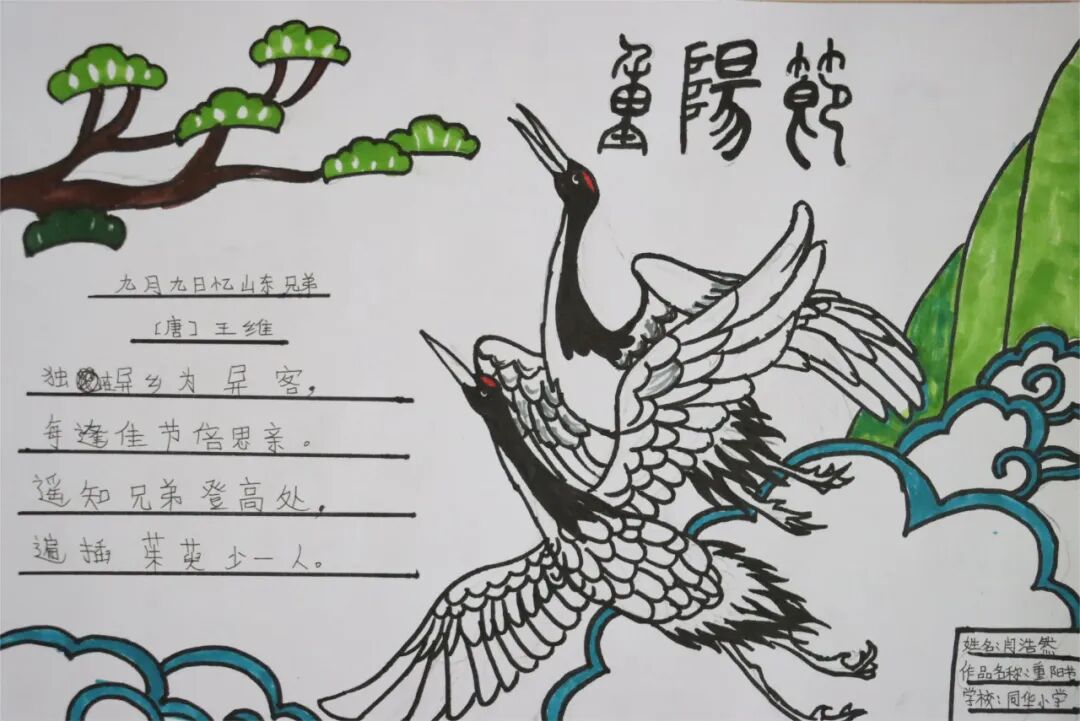 重陽節
九月九日忆山东兄弟
[唐]王维
独在异乡为异客，
每逢佳节倍思亲。
遥知兄弟登高处，
遍插茱萸少一人。
姓名：肖浩然
作品名称：重阳节
学校：同华小学